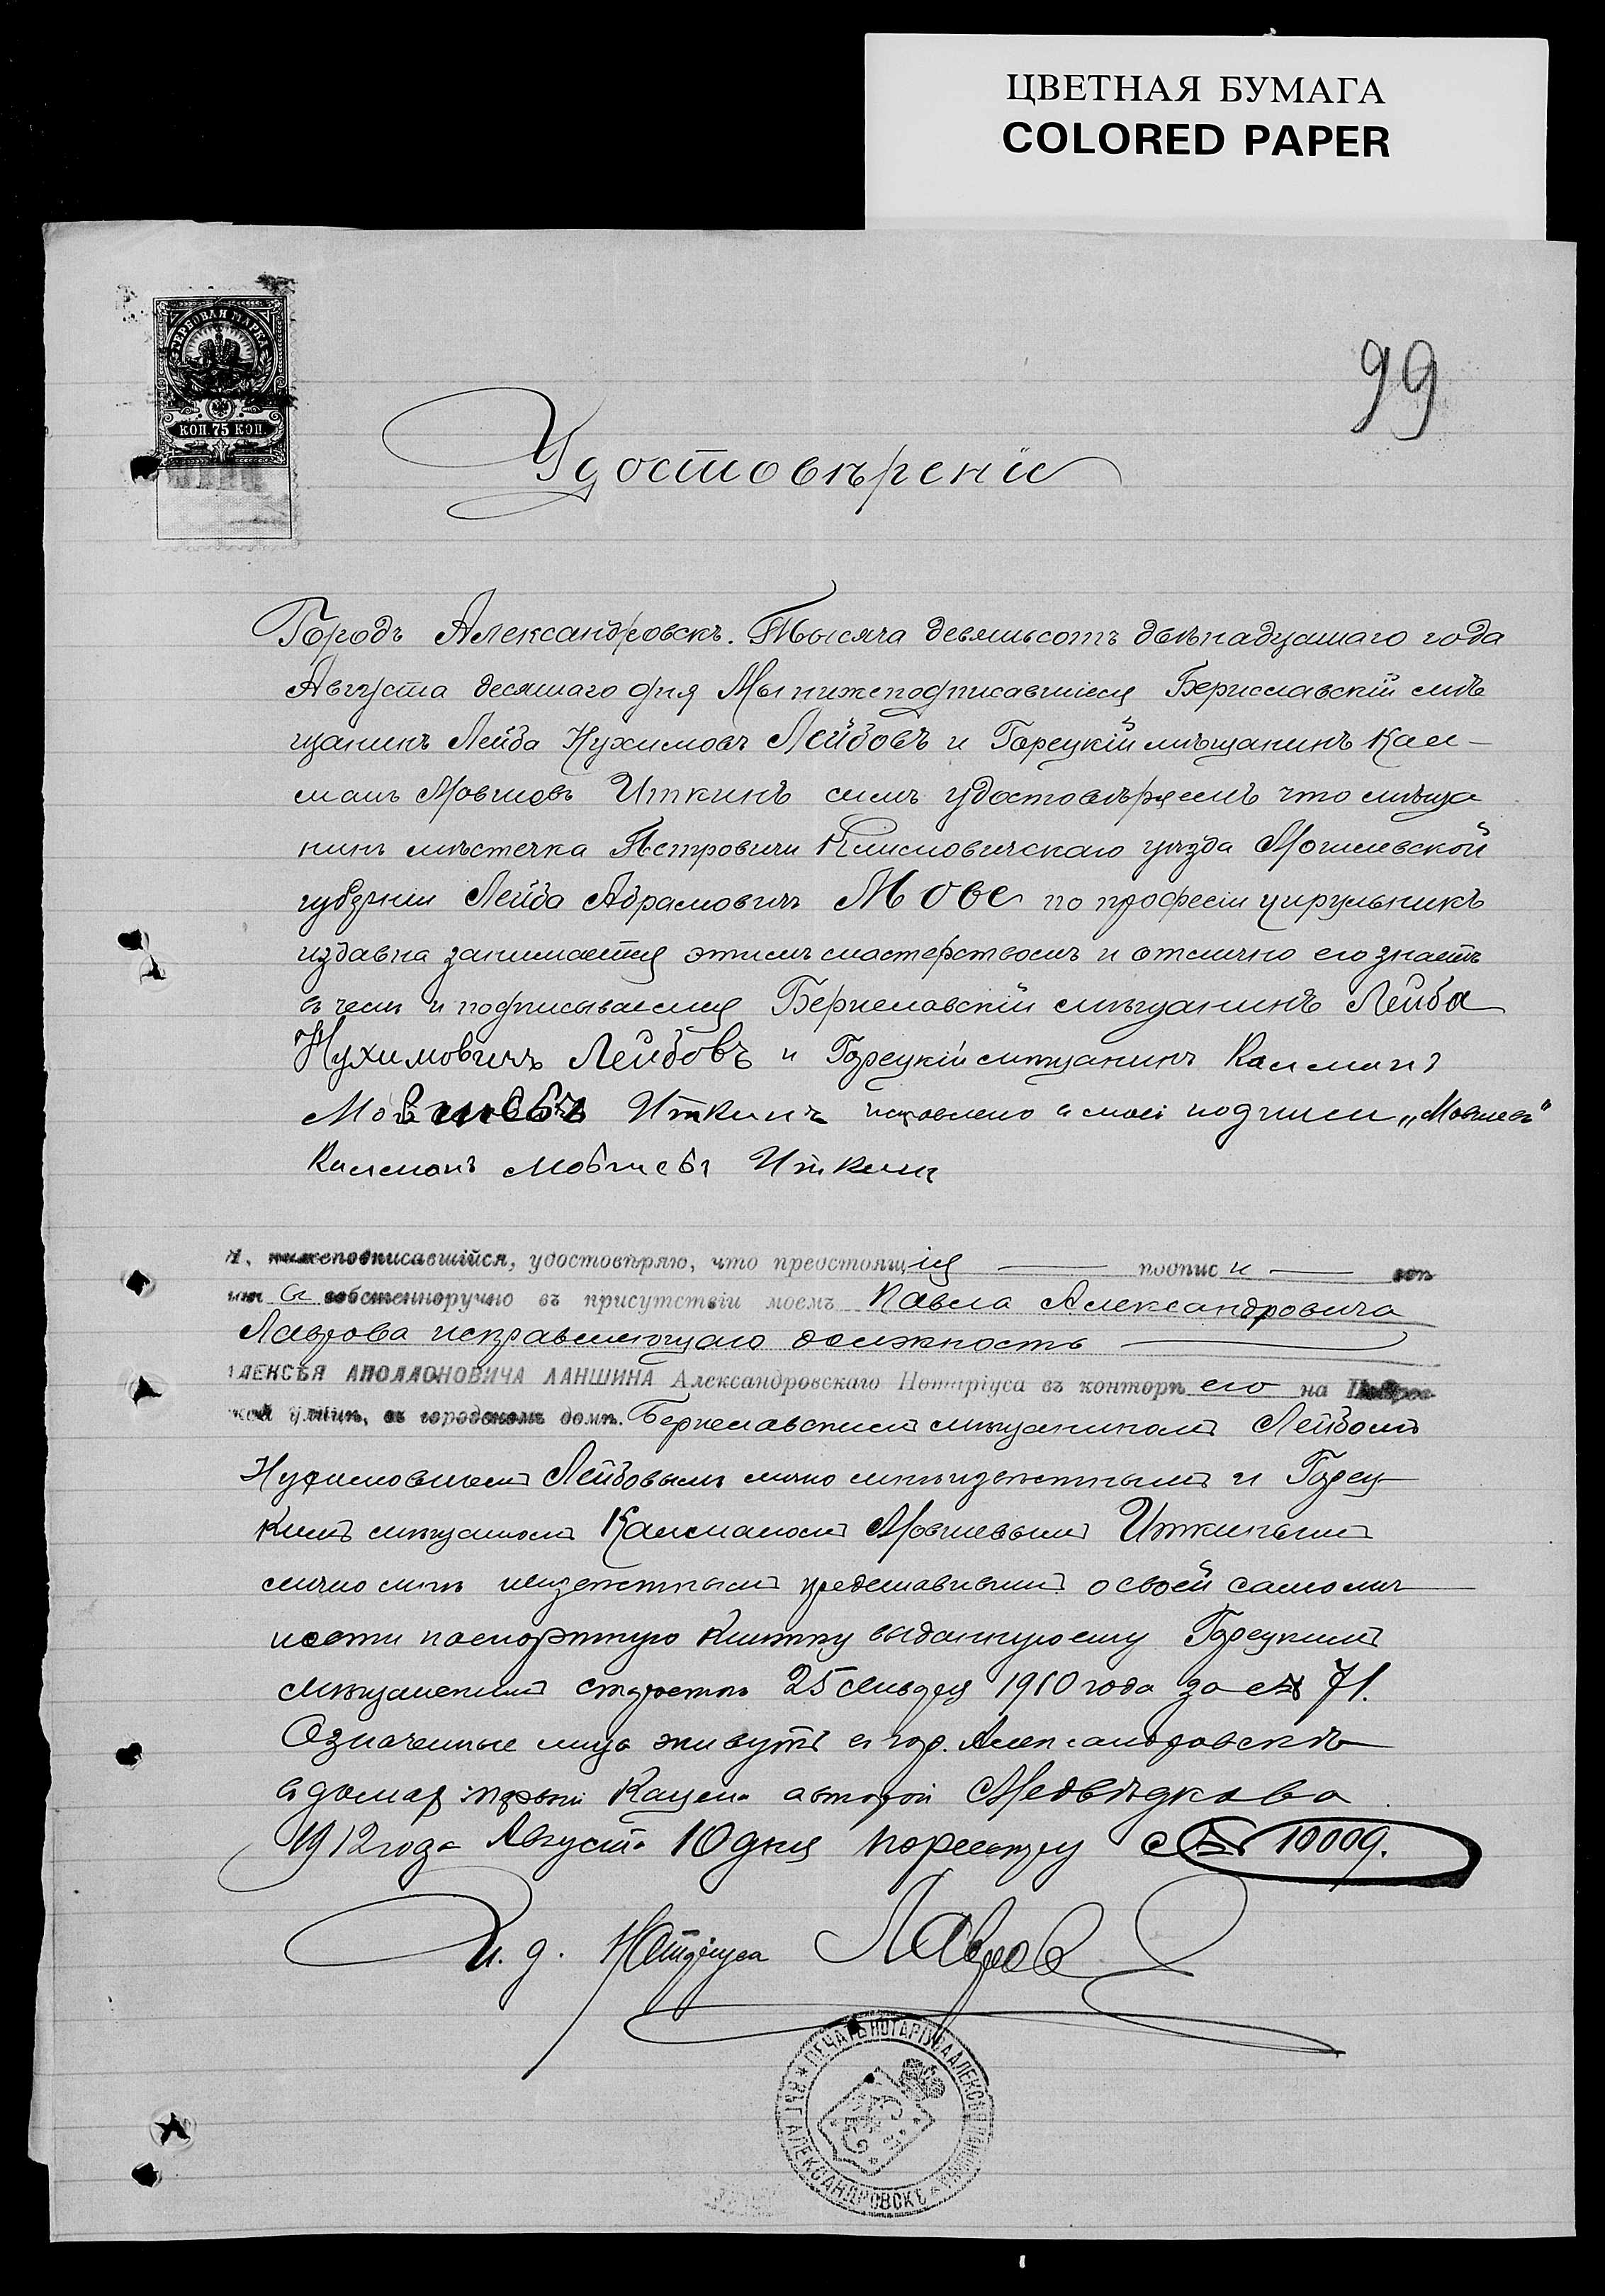 ЦВЕТНАЯ БУМАГА
COLORED PAPER
ГЕРБОВАЯ МАРКА
КОП. 75 КОП.
99
Удостовѣреніе
Городъ Александровскъ. Тысяча девятьсотъ двѣнадцатаго года
Августа десятаго дня Мы нижеподписавшіеся Бериславскій мѣ
щанинъ Лейба Нухимовъ Лейбовъ и Горецкій мѣщанинъ Кал-
манъ Мовшовъ Иткинъ симъ удостовѣряемъ что мѣща
нинъ мѣстечка Петровичи Климовичскаго уѣзда Могилевской
губерніи Лейба Абрамовичъ Мове по професіи цирульникъ
издавна занимается этимъ мастерствомъ и отлично его знаетъ
въ чемъ и подписываемся Бериславскій мѣщанинъ Лейба
Нухимовичъ Лейбовъ и Горецкій мѣщанинъ Калманъ
Иткинъ исправлено въ моей подписи „Мовшевъ"
Калманъ Мовшевъ Иткинъ
Я, нижеподписавшійся, удостовѣряю, что предстоящія подписи
собственноручно въ присутствіи моемъ Павла Александровича
Лаврова исправляющаго должность
АЛЕКСѢЯ АПОЛЛОНОВИЧА ЛАНШИНА Александровскаго Нотаріуса въ конторѣ его на
улицѣ, въ городскомъ домѣ. Бериславскимъ мѣщаниномъ Лейбомъ
Нухимовымъ Лейбовымъ лично мнѣ извѣстнымъ и Горец
кимъ мѣщаниномъ Калманомъ Мовшевымъ Иткинымъ
лично мнѣ неизвѣстнымъ представившимъ о своей самолич
ности паспортную книжку выданную ему Горецкимъ
мѣщанскимъ старостою 25 января 1910 года за № 71.
Означенные лица живутъ въ гор. Александровскѣ
въ домах первый Кацена а второй Медвѣдкова
1912 года Августа 10 дня По реестру № 10009.
И. д. Нотаріуса Лавров
ПЕЧАТЬ НОТАРІУСА АЛЕКСѢЯ ЛАНШИНА ВЪ Г. АЛЕКСАНДРОВСКѢ